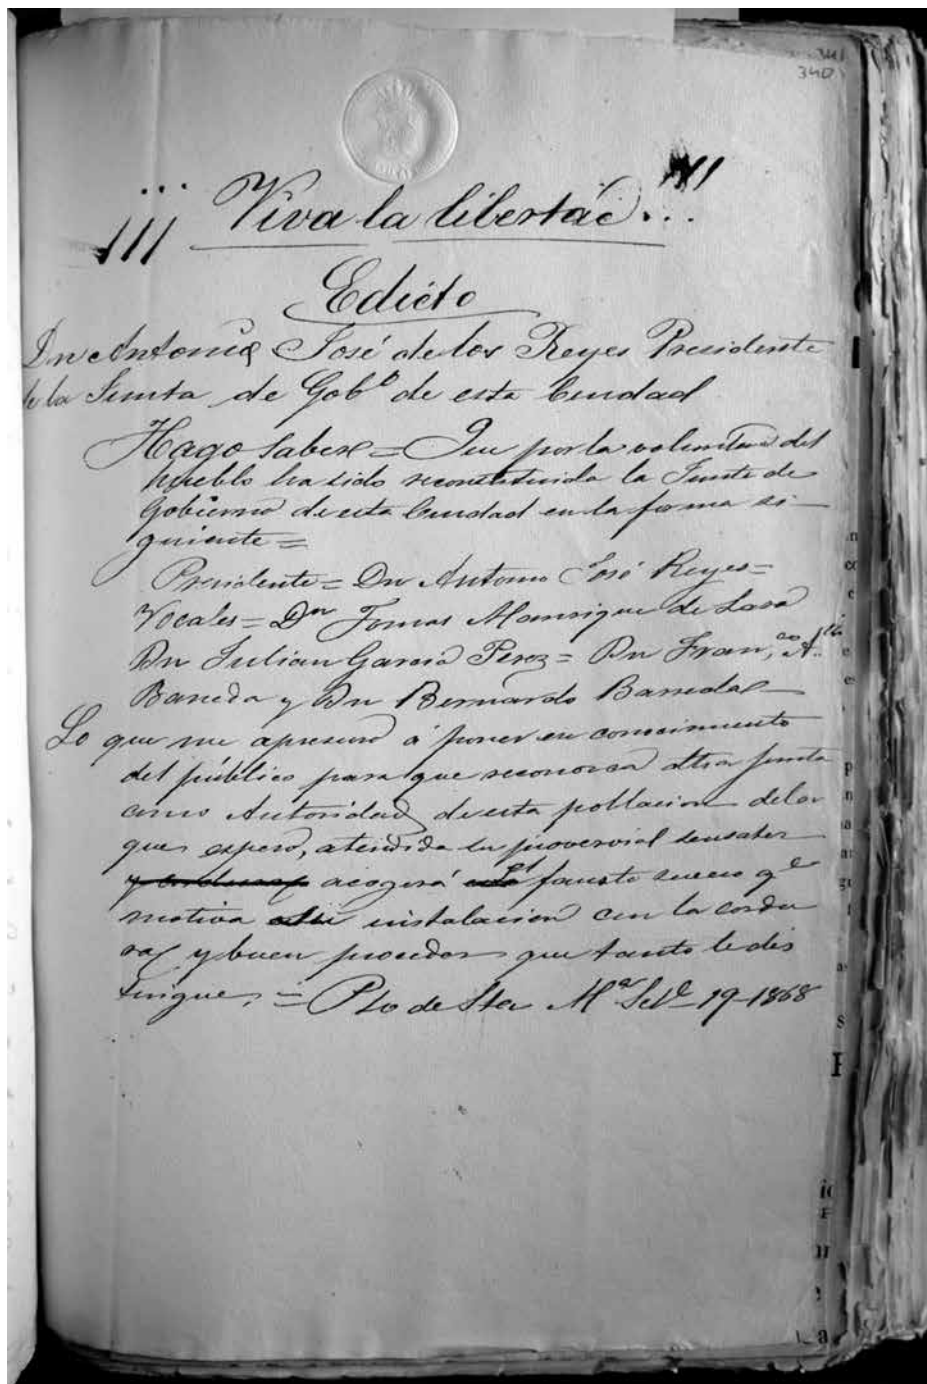 341
340
¡¡¡ Viva la libertad !!!
Edicto
Dn Antonio José de los Reyes Presidente
de la Junta de Gobº de esta Ciudad
Hago saber = Que por la voluntad del
pueblo ha sido reconstituida la Junta de
Gobierno de esta Ciudad en la forma si-
guiente =
Presidente = Dn Antonio José Reyes =
Vocales = Dn Tomas Manrique de Lara
Dn Julian Garcia Perez = Dn Franco A.
y Dn Bernardo
Lo que me apresuro á poner en conocimiento
del público para que reconozca dha junta
como Autoridad de esta poblacion de la
que espero, atendida su proverbial sensatez
acogerá el fausto suceso qe
motiva su instalacion con la cordu
ra y buen proceder que tanto le dis
tingue. = Pto de Sta Mª Setе 19-1868